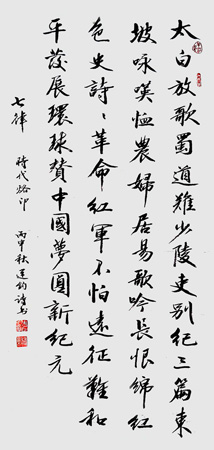 太白放歌蜀道難少陵吏别紀三篇東
坡咏嘆恤農婦居易歌吟長恨綿紅
色史詩〻革命紅軍不怕遠征難和
平發展環球贊中國夢圓新紀元
七律 時代烙印 丙申秋